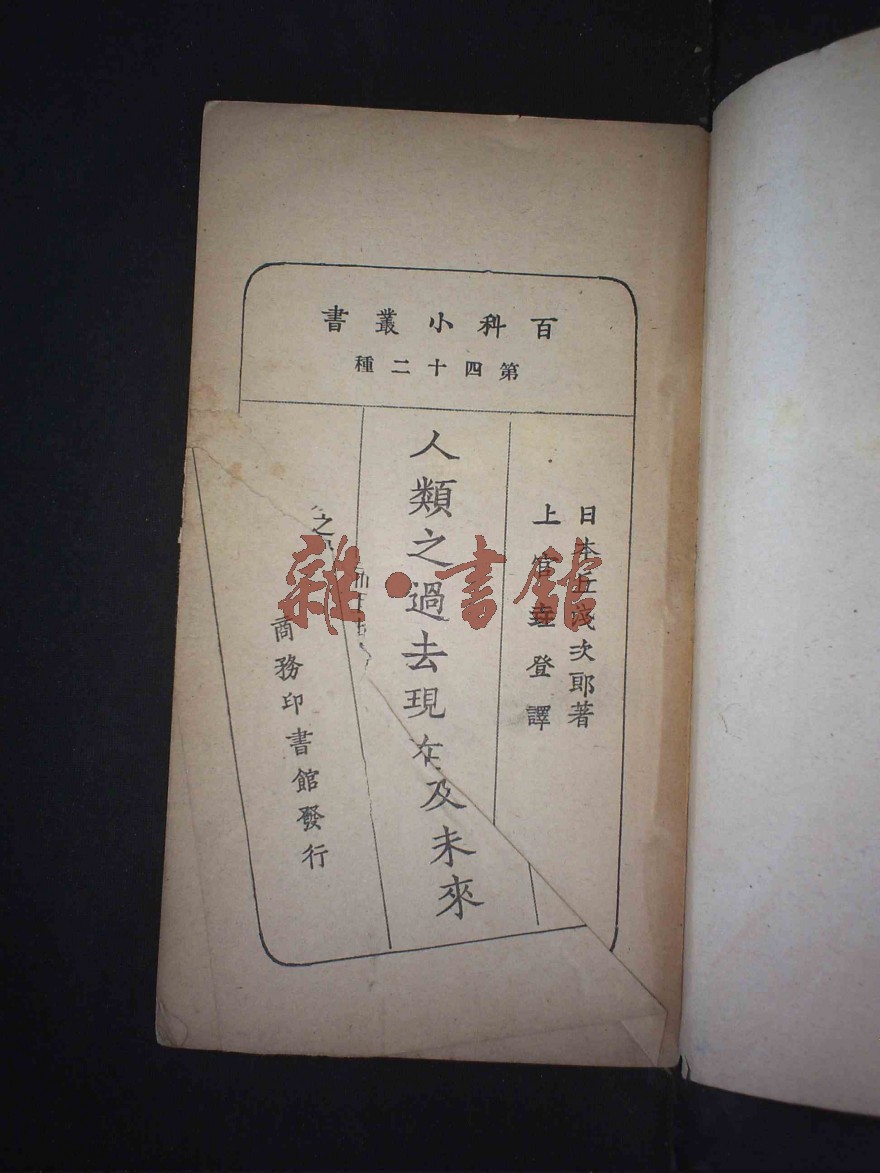 百科小叢書
第四十二種
日本丘淺次郎著
上官垚登譯
人類之過去現在及未來
商務印書館發行
雜·書館